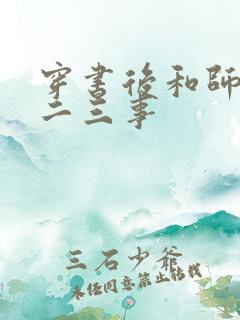 穿書後和師
二三事
三石少爺
未經同意禁止轉載